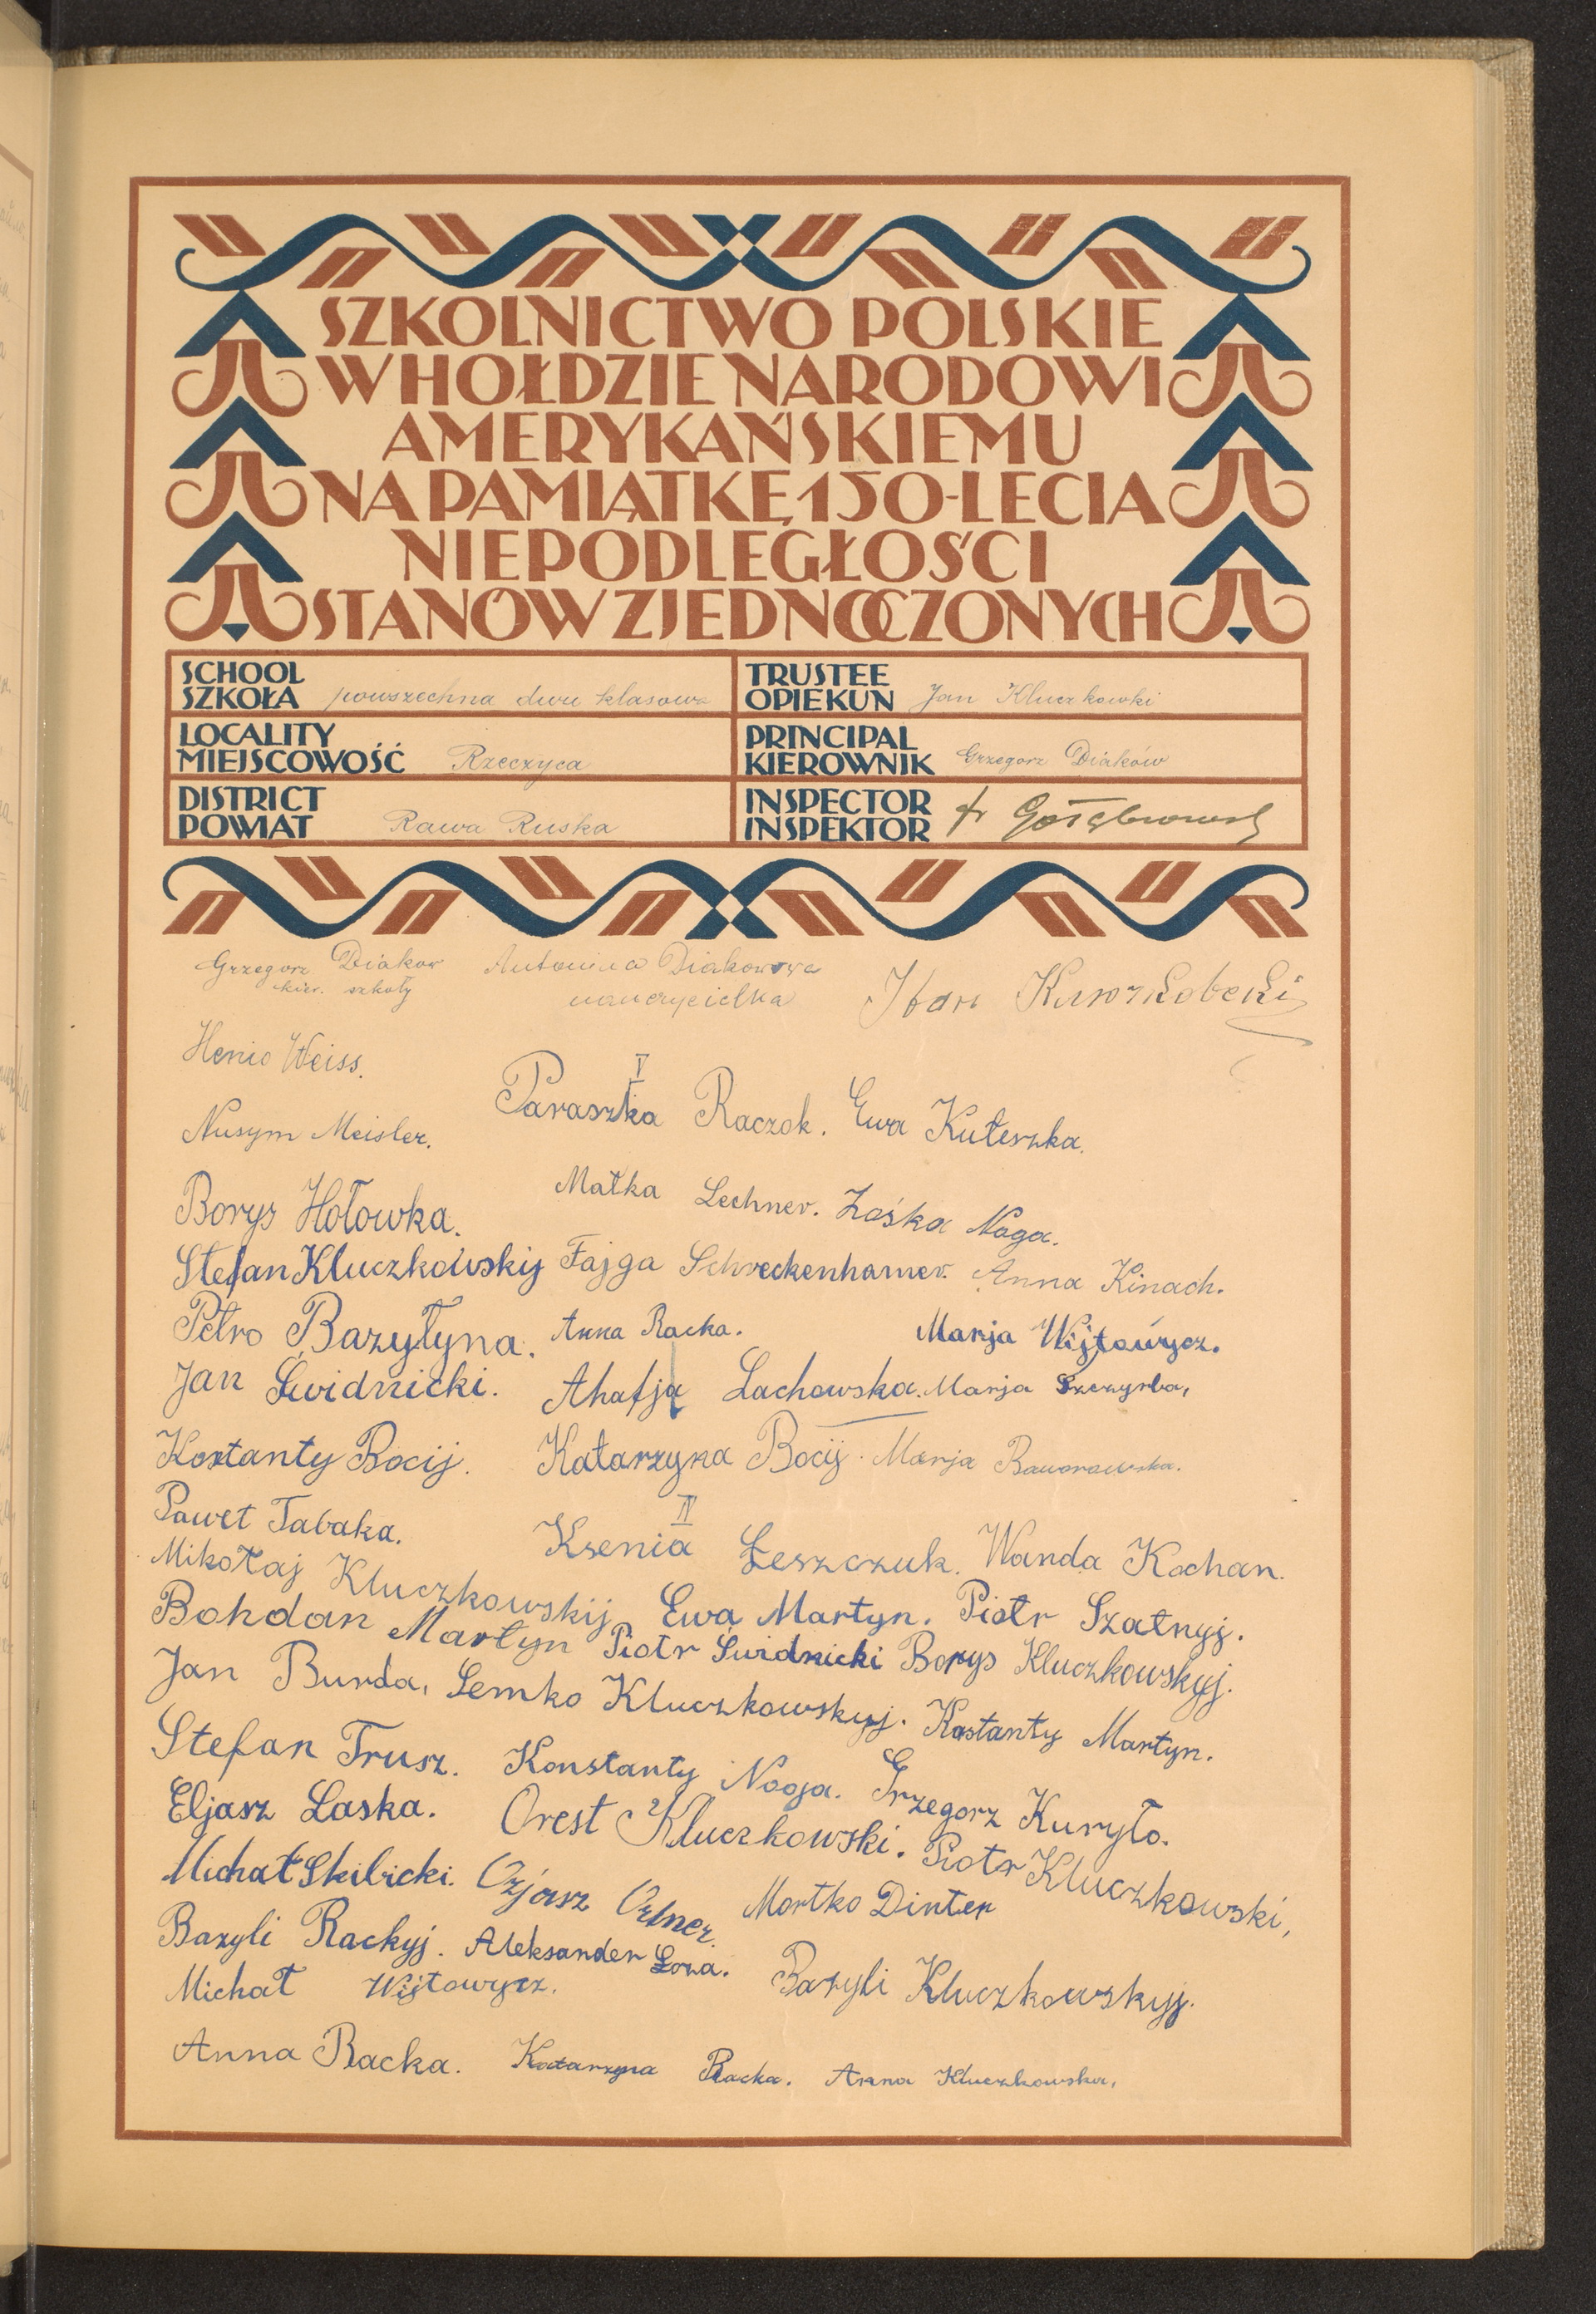 SZKOLNICTWO POLSKIE
W HOŁDZIE NARODOWI
AMERYKAŃSKIEMU
NA PAMIĄTKĘ 150-LECIA
NIEPODLEGŁOŚCI
STANÓW ZJEDNOCZONYCH
SCHOOL
SZKOŁA powszechna dwu klasowa
TRUSTEE
OPIEKUN Jan Kluczkowki
LOCALITY
MIEJSCOWOŚĆ Rzeczyca
PRINCIPAL
KIEROWNIK Grzegorz Diaków
DISTRICT
POWIAT Rawa Ruska
INSPECTOR
INSPEKTOR
Grzegorz Diakow Antonina Diakowowa
kier. szkoły nauczycielka
Henio Weiss.
V
Paraszka Raczok. Ewa Kuteszka.
Nusym Meisler.
Małka Lechner. Zośka Noga.
Borys Hołowka.
Stefan Kluczkowskij Fajga Schreckenhamer. Anna Kinach.
Petro Bazyłyna. Anna Racka. Marja Wijtowycz.
Jan Świdnicki. Ahafja Lachowska. Marja Szczyrba,
Kostanty Bocij. Katarzyna Bocij. Marja Baworowska.
Paweł Tabaka.
IV
Ksenia Łeszczuk. Wanda Kochan.
Mikołaj Kluczkowskij Ewa Martyn. Piotr Szatnyj.
Bohdan Martyn Piotr Świdnicki Borys Kluczkowskyj.
Jan Burda, Semko Kluczkowskyj. Kostanty Martyn.
Stefan Trusz. Konstanty Noga. Grzegorz Kuryło.
Eljasz Laska. Orest Kluczkowski. Piotr Kluczkowski,
Michał Skibicki. Ozjasz Ortner. Mortko Dinter
Bazyli Rackyj. Aleksander Łoza. Bazyli Kluczkowskyj.
Michał Wijtowycz.
Anna Racka. Katarzyna Racka. Anna Kluczkowska,